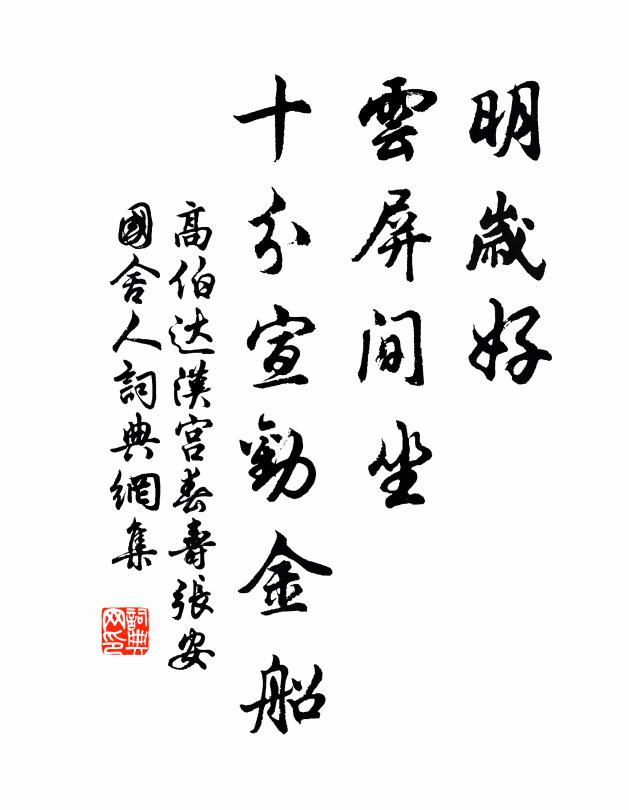 明歲好
雲屏間坐
十分宣勸金船
高伯达漢宮春壽張安
國舍人詞典網集
詞典
网印